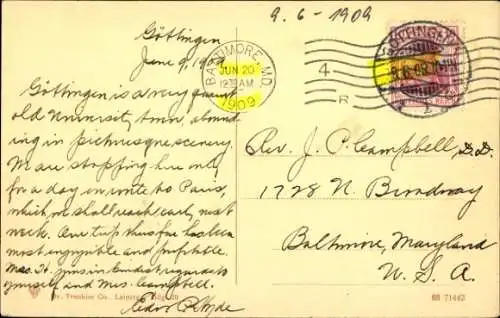 9.6-1909
Göttingen
June 9, 1909
Göttingen is a very quaint
old University town, abound-
ing in picturesque scenery.
We are stopping here only
for a day en route to Paris,
which we shall reach early next
week. Our trip thus far has been
most enjoyable and profitable.
Mrs. H. joins in kindest regards to
yourself and Mrs. Campbell.
BALTIMORE, MD.
JUN 20
AM
1909
4
R
GÖTTINGEN
9.6.09
Rev. J. P. Campbell, D.D.
1728 N. Broadway
Baltimore, Maryland
U.S.A.
Dr. Trenkler Co., Leipzig.